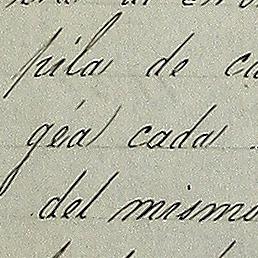 pila de
géa cada
del mismo